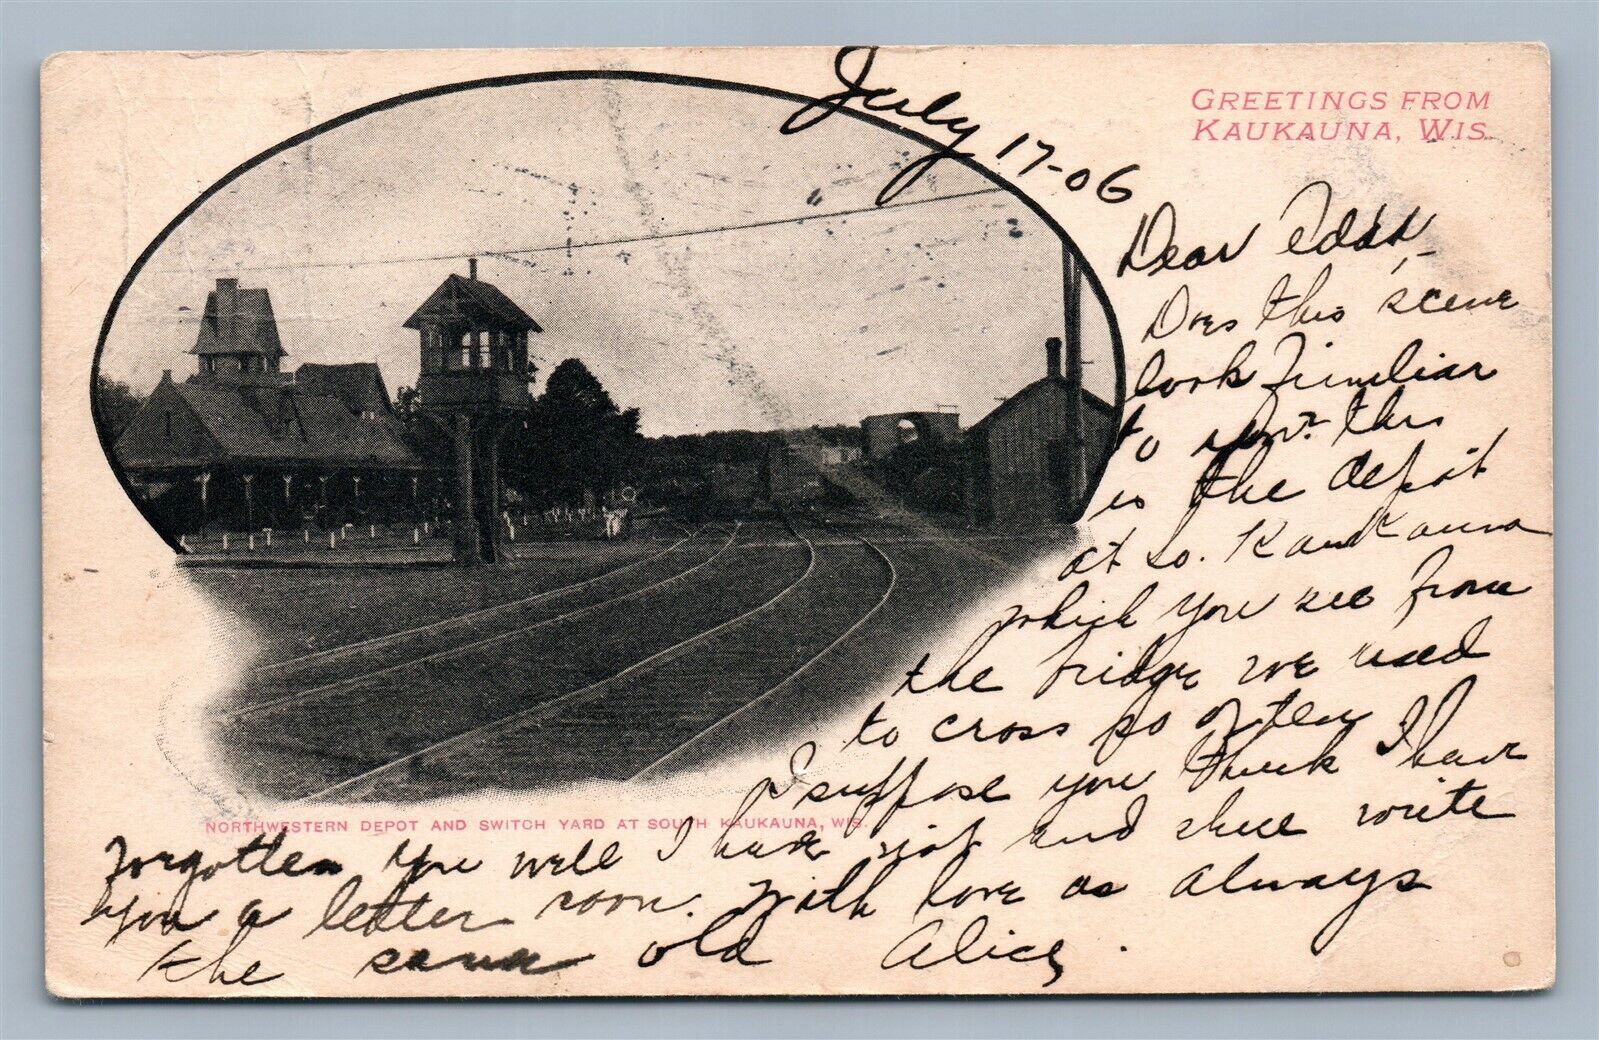 GREETINGS FROM
KAUKAUNA, WIS.
July 17-06
Dear
Does this scene
look Fimiliar
to you? this
is the depot
at So. Kaukauna
which you see from
the bridge we used
to cross so often
I suppose you think I have
NORTHWESTERN DEPOT AND SWITCH YARD AT SOUTH KAUKAUNA, WIS.
forgotten you well I have not and shee write
you a letter soon. With love as always
the same old Alice.